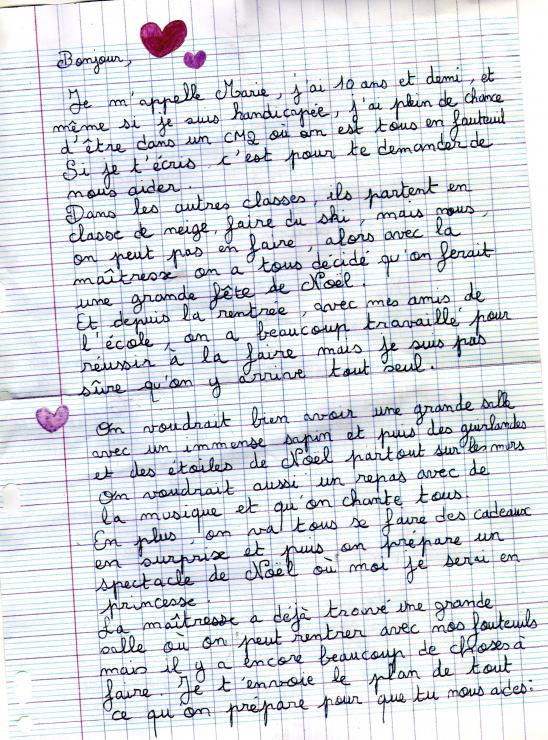 Bonjour,
Je m'appelle Marie, j'ai 10 ans et demi, et
même si je suis handicapée, j'ai plein de chance
d'être dans un CM2 où on est tous en fauteuil
Si je t'écris, c'est pour te demander de
nous aider.
Dans les autres classes, ils partent en
classe de neige, faire du ski, mais nous,
on peut pas en faire, alors avec la
maîtresse on a tous décidé qu'on ferait
une grande fête de Noël.
Et depuis la rentrée, avec mes amis de
l'école, on a beaucoup travaillé pour
réussir à la faire mais je suis pas
sûre qu'on y arrive tout seul.
On voudrait bien avoir une grande salle
avec un immense sapin et puis des guirlandes
et des étoiles de Noël partout sur les murs
On voudrait aussi un repas avec de
la musique et qu'on chante tous.
En plus, on va tous se faire des cadeaux
en surprise et puis on prépare un
spectacle de Noël où moi je serai en
princesse.
La maîtresse a déjà trouvé une grande
salle où on peut rentrer avec nos fauteuils
mais il y a encore beaucoup de choses à
faire. Je t'envoie le plan de tout
ce qu'on prépare pour que tu nous aides.